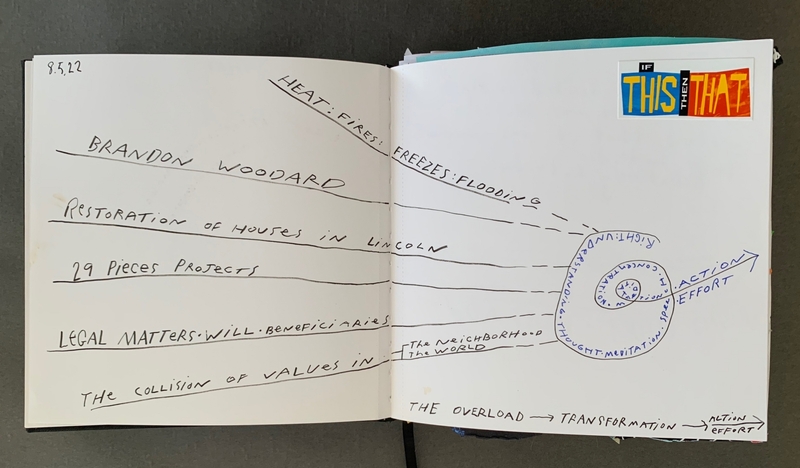 8.5.22
IF
THIS THEN THAT
HEAT: FIRES: FREEZES: FLOODING
BRANDON WOODARD
RESTORATION OF HOUSES IN LINCOLN
29 PIECES PROJECTS
LEGAL MATTERS · WILL · BENEFICIARIES
THE COLLISION OF VALUES IN
THE NEIGHBORHOOD
THE WORLD
RIGHT: UNDERSTANDING · THOUGHT · MEDITATION · SPEECH · CONCENTRATION
ACTION
EFFORT
THE OVERLOAD → TRANSFORMATION → ACTION
EFFORT